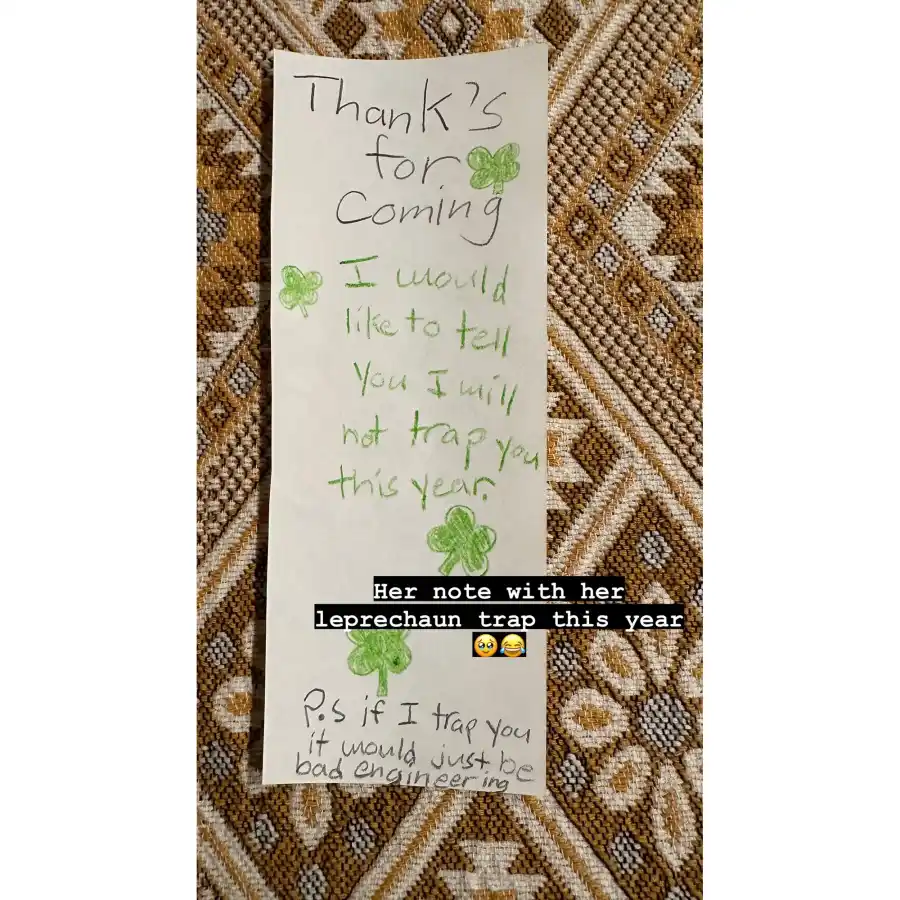 Thank's
for
Coming
I would
like to tell
you I will
not trap you
this year.
Her note with her
leprechaun trap this year
🥹😂
P.S if I trap you
it would just be
bad engineering